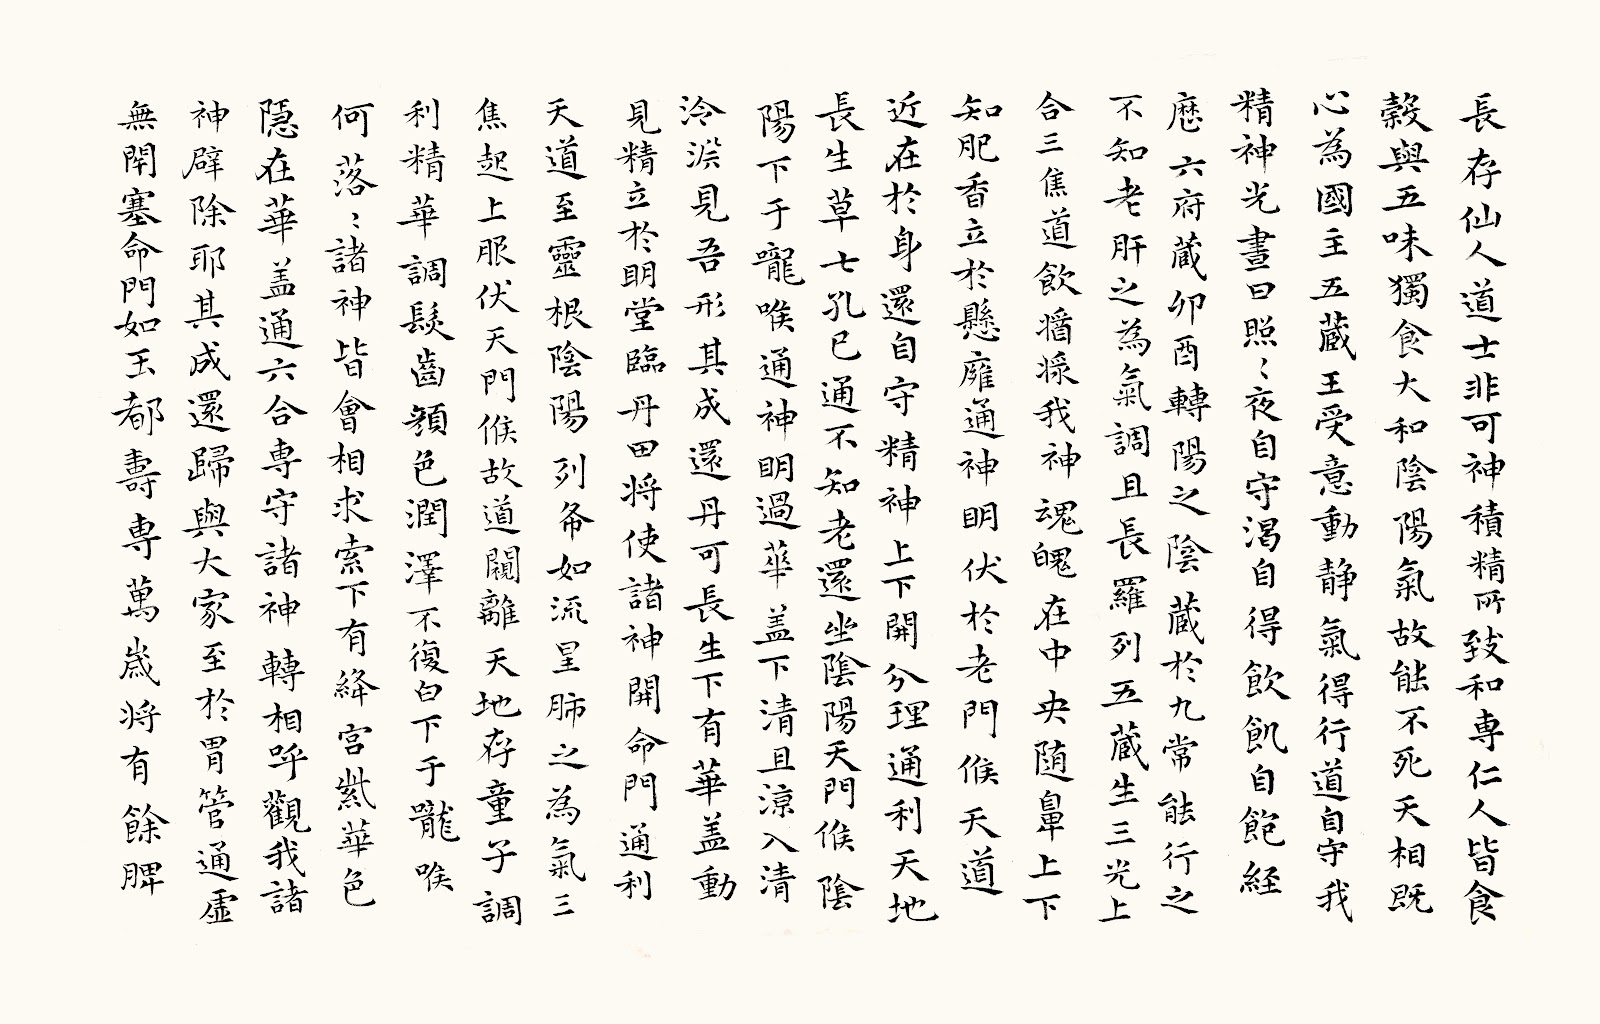 長存仙人道士非可神積精所致和専仁人皆食
穀與五味獨食大和陰陽氣故能不死天相既
心為國主五蔵王受意動静氣得行道自守我
精神光晝日照〻夜自守渴自得飲飢自飽経
歴六府蔵卯酉轉陽之陰蔵於九常能行之
不知老肝之為氣調且長羅列五蔵生三光上
合三焦道飲醬漿我神魂魄在中央随鼻上下
知肥香立於懸膺通神明伏於老門候天道
近在於身還自守精神上下開分理通利天地
長生草七孔已通不知老還坐陰陽天門候陰
陽下于嚨喉通神明過華盖下清且涼入清
泠淵見吾形其成還丹可長生下有華盖動
見精立於明堂臨丹田将使諸神開命門通利
天道至靈根陰陽列布如流星肺之為氣三
焦起上服伏天門候故道闚離天地存童子調
利精華調髮齒顔色潤澤不復白下于嚨喉
何落〻諸神皆會相求索下有絳宮紫華色
隱在華盖通六合専守諸神轉相呼觀我諸
神辟除耶其成還歸與大家至於胃管通虚
無閉塞命門如玉都壽専萬歳将有餘脾